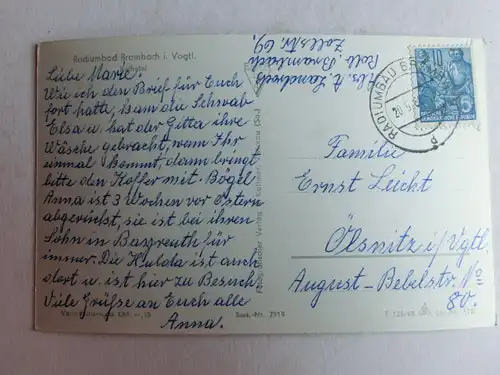 Radiumbad Brambach i. Vogtl.
Liebe Marie!
Wie ich den Brief für Euch
fort hatte, kam die Schwab
Elsa u. hat der Gitta ihre
Wäsche gebracht, wann Ihr
einmal kommt dann bringt
bitte den Koffer mit. Bögel
Anna ist 3 Wochen vor Ostern
abgereist, sie ist bei ihren
Sohn in Bayreuth für
immer. Die Hulda ist auch
dort u. ist hier zu Besuch
Viele Grüße an Euch alle
Anna.
Abs. A.
Rdb. Brambach
Zollstr. 69.
RADIUMBAD BRAMBACH
10
Familie
Ernst Leicht
Ölsnitz i/Vgtl.
August-Bebelstr. No
80.
Best.-Nr. 7919